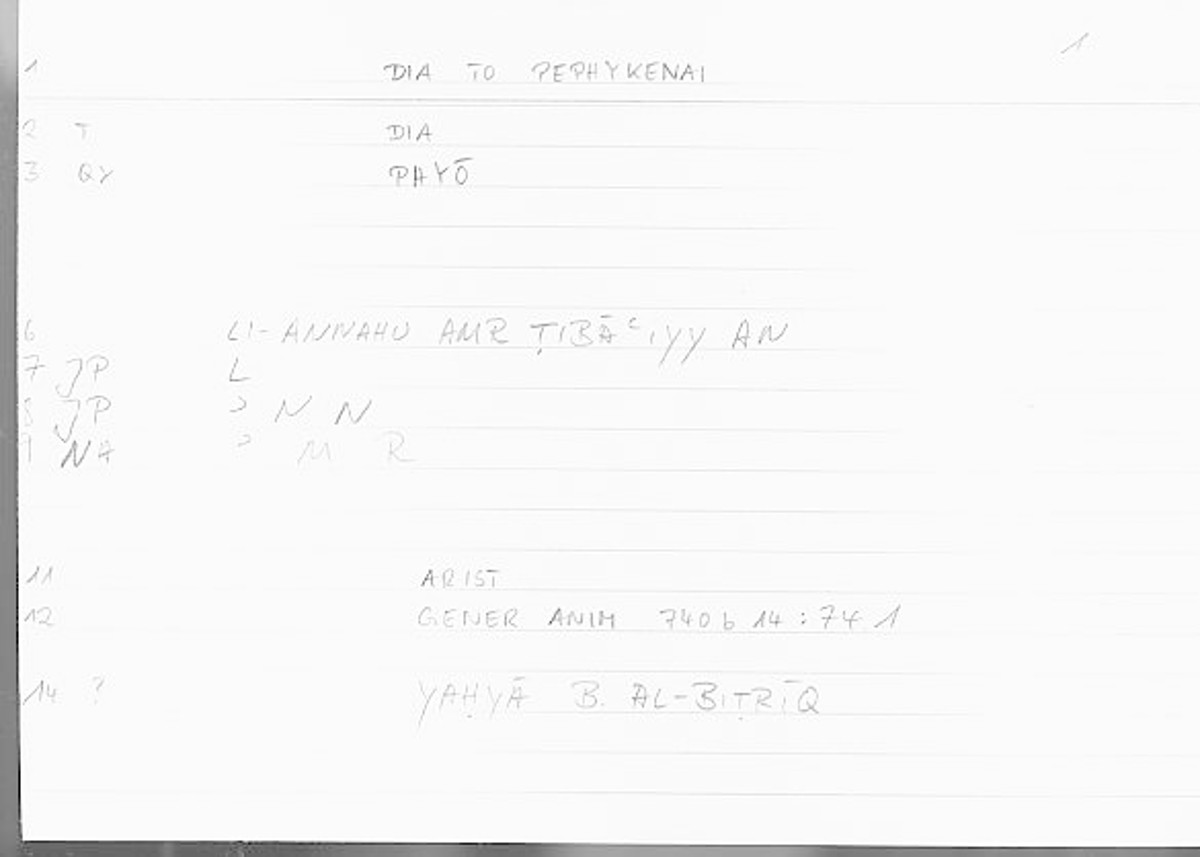 1
1 DIA TO PEPHYKENAI
2 T DIA
3 QY PHYŌ
6 LI-ANNAHU AMR ṬIBĀʿIYY AN
7 JP L
8 JP ʾ N N
9 NA ʾ M R
11 ARIST
12 GENER ANIM 740 b 14 : 74 1
14 ? YAḤYĀ B. AL-BIṬRĪQ